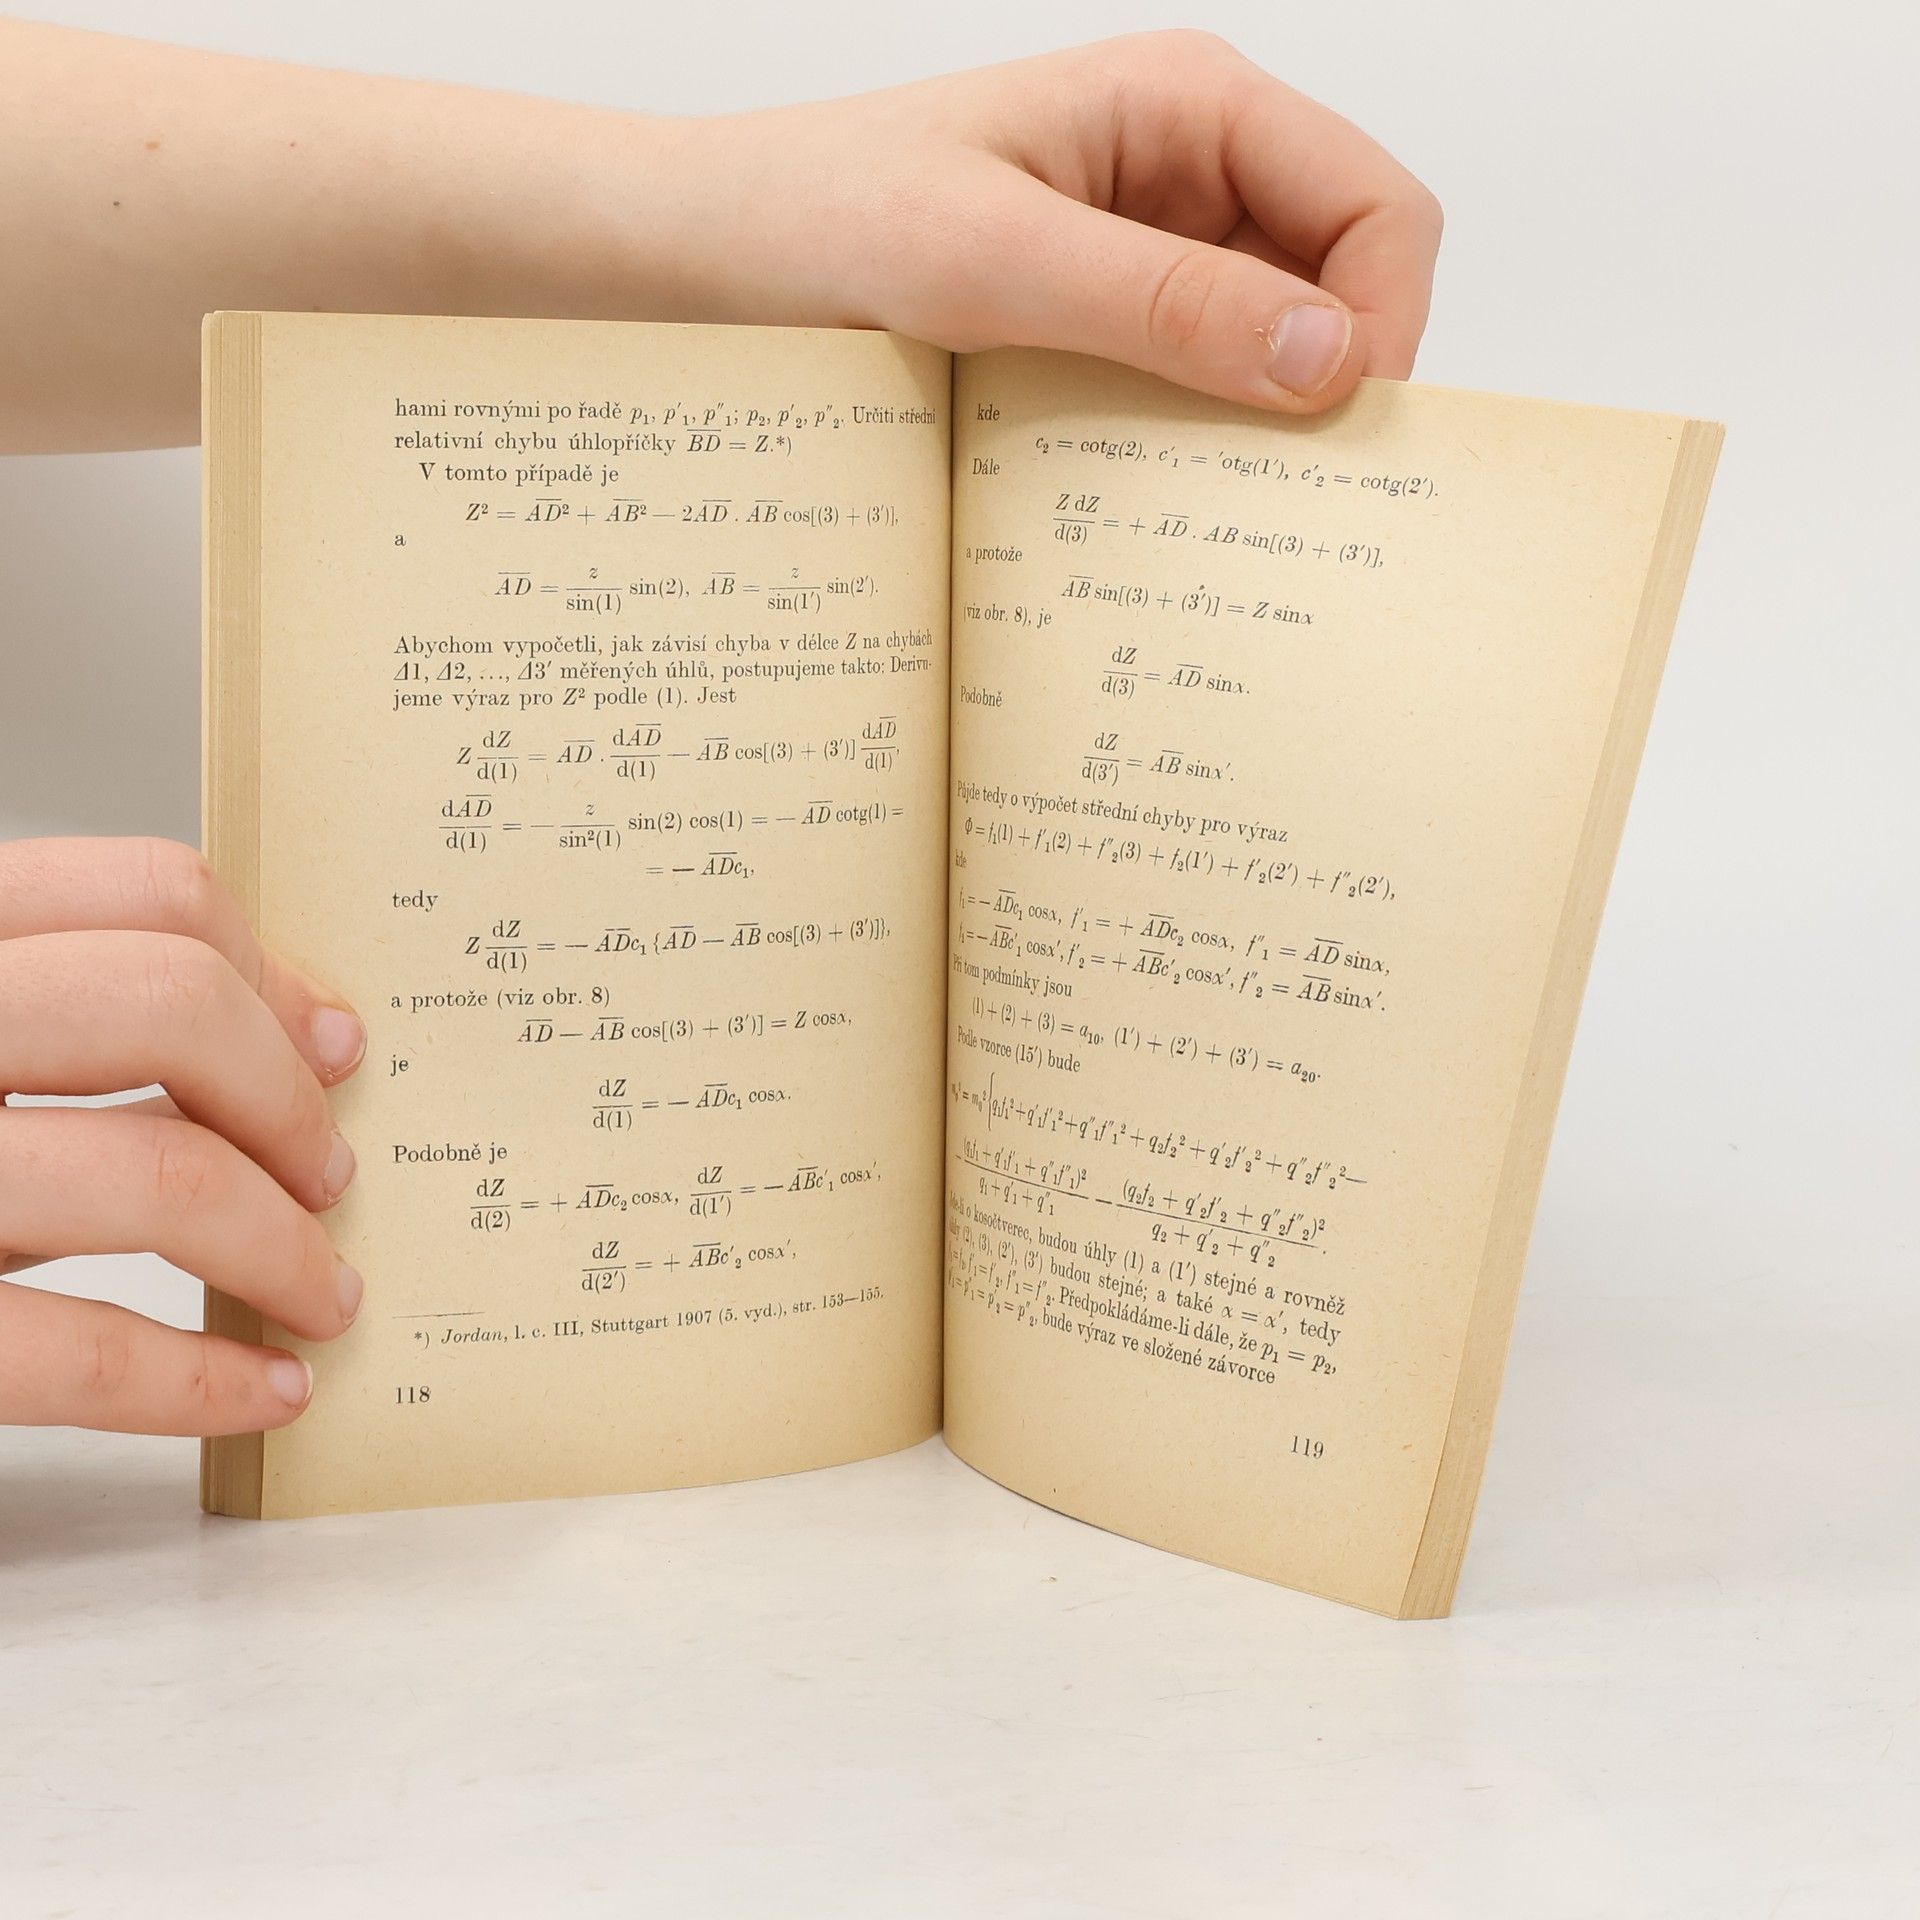 hami rovnými po řadě p₁, p′₁, p″₁; p₂, p′₂, p″₂. Určiti střední
relativní chybu úhlopříčky B̅D̅ = Z.*)
V tomto případě je
Z² = A̅D̅² + A̅B̅² — 2A̅D̅ . A̅B̅ cos[(3) + (3′)],
a
A̅D̅ = z/sin(1) sin(2), A̅B̅ = z/sin(1′) sin(2′).
Abychom vypočetli, jak závisí chyba v délce Z na chybách
Δ1, Δ2, ..., Δ3′ měřených úhlů, postupujeme takto: Derivu-
jeme výraz pro Z² podle (1). Jest
Z dZ/d(1) = A̅D̅ . dA̅D̅/d(1) — A̅B̅ cos[(3) + (3′)] dA̅D̅/d(1),
dA̅D̅/d(1) = — z/sin²(1) sin(2) cos(1) = — A̅D̅ cotg(1) =
= — A̅D̅c₁,
tedy
Z dZ/d(1) = — A̅D̅c₁ {A̅D̅ — A̅B̅ cos[(3) + (3′)]},
a protože (viz obr. 8)
A̅D̅ — A̅B̅ cos[(3) + (3′)] = Z cosα,
je
dZ/d(1) = — A̅D̅c₁ cosα.
Podobně je
dZ/d(2) = + A̅D̅c₂ cosα, dZ/d(1′) = — A̅B̅c′₁ cosα′,
dZ/d(2′) = + A̅B̅c′₂ cosα′,
*) Jordan, l. c. III, Stuttgart 1907 (5. vyd.), str. 153—155.
118
kde
c₂ = cotg(2), c′₁ = ′otg(1′), c′₂ = cotg(2′).
Dále
Z dZ/d(3) = + A̅D̅ . AB sin[(3) + (3′)],
a protože
A̅B̅ sin[(3) + (3′)] = Z sinα
(viz obr. 8), je
dZ/d(3) = A̅D̅ sinα.
Podobně
dZ/d(3′) = A̅B̅ sinα′.
Půjde tedy o výpočet střední chyby pro výraz
Φ = f₁(1) + f′₁(2) + f″₂(3) + f₂(1′) + f′₂(2′) + f″₂(2′),
kde
f₁ = — A̅D̅c₁ cosα, f′₁ = + A̅D̅c₂ cosα, f″₁ = A̅D̅ sinα,
= — A̅B̅c′₁ cosα′, f′₂ = + A̅B̅c′₂ cosα′, f″₂ = A̅B̅ sinα′.
Při tom podmínky jsou
(1) + (2) + (3) = a₁₀, (1′) + (2′) + (3′) = a₂₀.
Podle vzorce (15′) bude
= m₀² {q₁f₁² + q′₁f′₁² + q″₁f″₁² + q₂f₂² + q′₂f′₂² + q″₂f″₂² —
— (q₁f₁ + q′₁f′₁ + q″₁f″₁)²/q₁ + q′₁ + q″₁ — (q₂f₂ + q′₂f′₂ + q″₂f″₂)²/q₂ + q′₂ + q″₂.
o kosočtverec, budou úhly (1) a (1′) stejné a rovněž
úhly (2), (3), (2′), (3′) budou stejné; a také α = α′, tedy
f₁ = f₂, f′₁ = f′₂, f″₁ = f″₂. Předpokládáme-li dále, že p₁ = p₂,
p′₁ = p″₁ = p′₂ = p″₂, bude výraz ve složené závorce
119